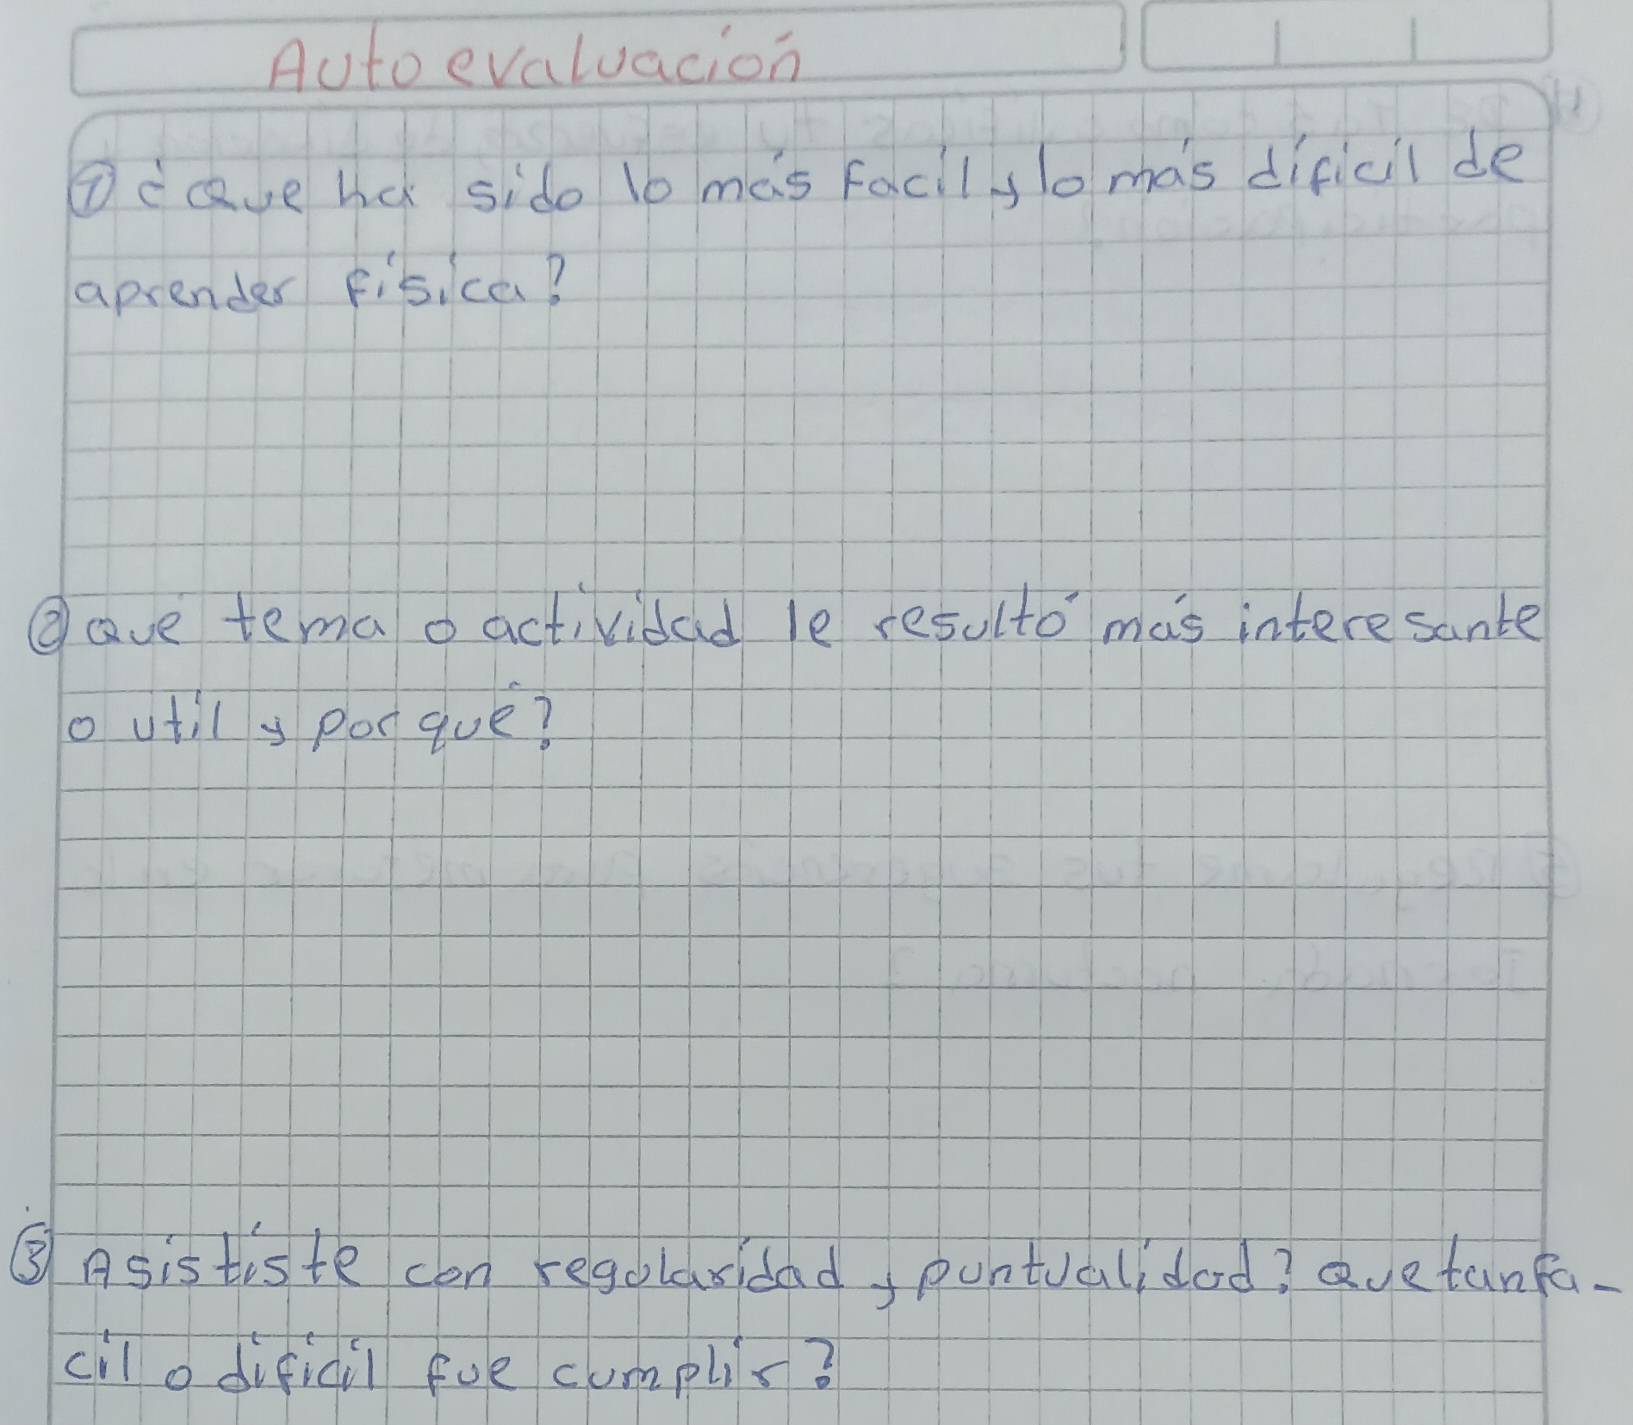 Autoevaluación
① ¿Que ha sido lo más facil y lo más díficil de
aprender física?
② Qué tema o actividad le resultó más interesante
o util y por qué?
③ Asististe con regularidad y puntualidad? Que tan fa-
cil o dificil fue cumplir?